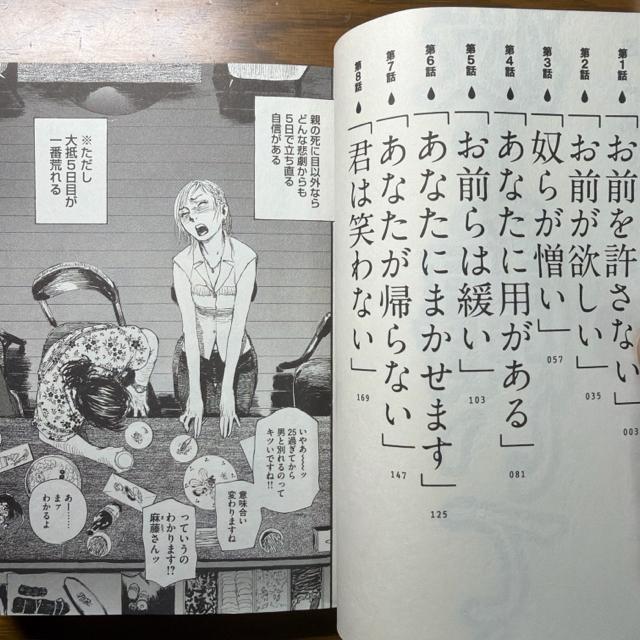 第1話
「お前を許さない」
003
第2話
「お前が欲しい」
035
第3話
「奴らが憎い」
057
第4話
「あなたに用がある」
081
第5話
「お前らは緩い」
103
第6話
「あなたにまかせます」
125
第7話
「あなたが帰らない」
147
第8話
「君は笑わない」
169
親の死に目以外なら
どんな悲劇からも
5日で立ち直る
自信がある
※ただし
大抵5日目が
一番荒れる
いやあ〜〜〜ッ
25過ぎてから
男と別れるのって
キツいですね!!
意味合い
変わりますね
っていうの
わかります!?
麻藤さんッ
あー……
まァ
わかるよ